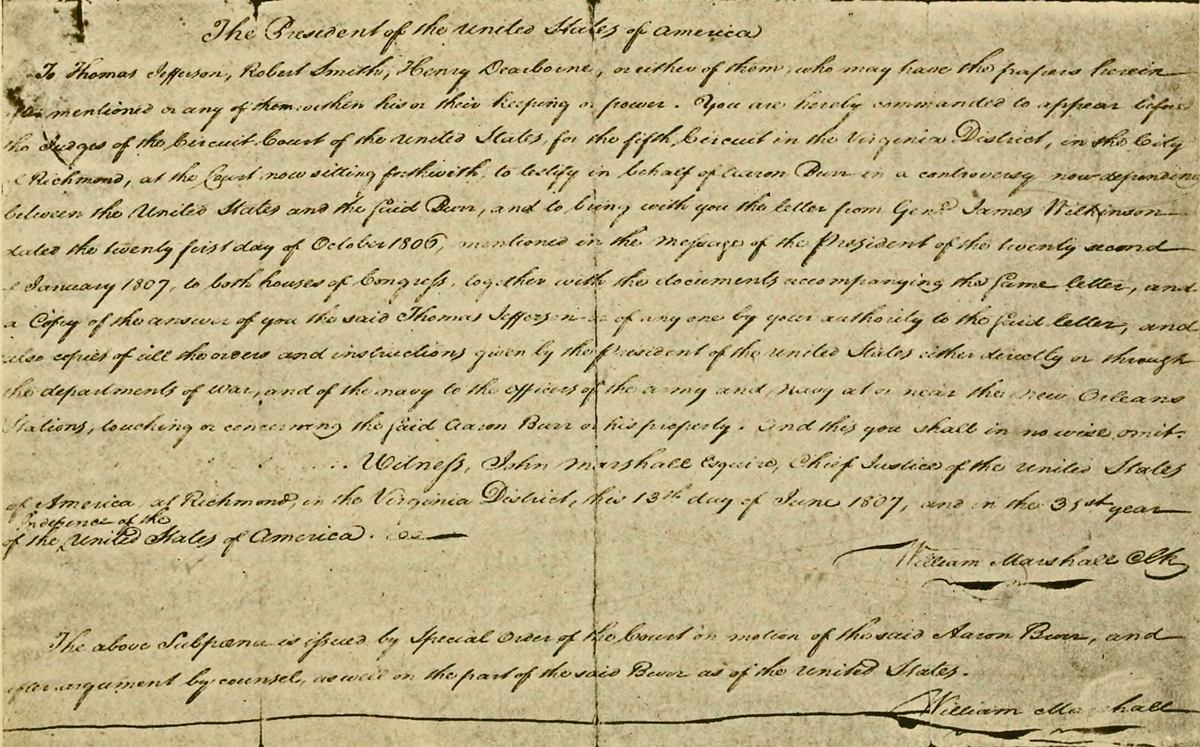 The President of the United States of America
To Thomas Jefferson, Robert Smith, Henry Dearborne, or either of them, who may have the papers herein
mentioned or any of them within his or their keeping or power. You are hereby commanded to appear before
the Judges of the Circuit Court of the United States, for the fifth Circuit in the Virginia District, in the City
of Richmond, at the Court now sitting forthwith, to testify in behalf of Aaron Burr in a controversy now depending
between the United States and the said Burr, and to bring with you the letter from Genl. James Wilkinson
dated the twenty first day of October 1806, mentioned in the message of the President of the twenty second
of January 1807, to both houses of Congress, together with the documents accompanying the same letter, and
a Copy of the answer of you the said Thomas Jefferson or of any one by your authority to the said letter, and
also copies of all the orders and instructions given by the President of the United States either directly or through
the departments of war, and of the navy to the officers of the army and navy at or near the New Orleans
Stations, touching or concerning the said Aaron Burr or his property. And this you shall in no wise omit.
Witness, John Marshall Esquire, Chief Justice of the United States
of America, at Richmond, in the Virginia District, this 13th day of June 1807, and in the 31st year
of the Indepence of the United States of America.
William Marshall Clk
The above Subpœna is issued by Special Order of the Court on motion of the said Aaron Burr, and
after argument by counsel, as well on the part of the said Burr as of the United States.
William Marshall